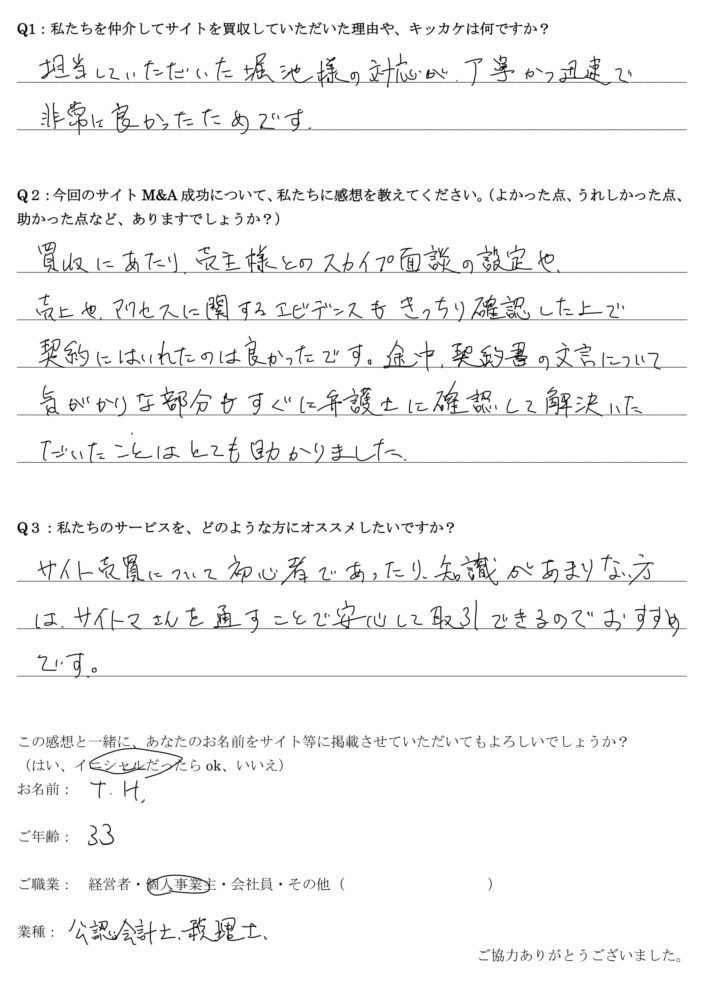 Q1：私たちを仲介してサイトを買収していただいた理由や、キッカケは何ですか？
担当していただいた堀池様の対応が、丁寧かつ迅速で
非常に良かったためです。
Q２：今回のサイト M&A 成功について、私たちに感想を教えてください。（よかった点、うれしかった点、
助かった点など、ありますでしょうか？）
買収にあたり、売主様とのスカイプ面談の設定や、
売上や、アクセスに関するエビデンスもきっちり確認した上で
契約にはいれたのは良かったです。途中、契約書の文言について
気がかりな部分もすぐに弁護士に確認して解決いた
だいたことはとても助かりました。
Q３：私たちのサービスを、どのような方にオススメしたいですか？
サイト売買について初心者であったり、知識があまりない方
は、サイトマさんを通すことで安心して取引できるのでおすすめ
です。
この感想と一緒に、あなたのお名前をサイト等に掲載させていただいてもよろしいでしょうか？
（はい、イニシャルだったら ok、いいえ）
お名前： T. H.
ご年齢： 33
ご職業： 経営者・個人事業主・会社員・その他（ ）
業種： 公認会計士、税理士、
ご協力ありがとうございました。